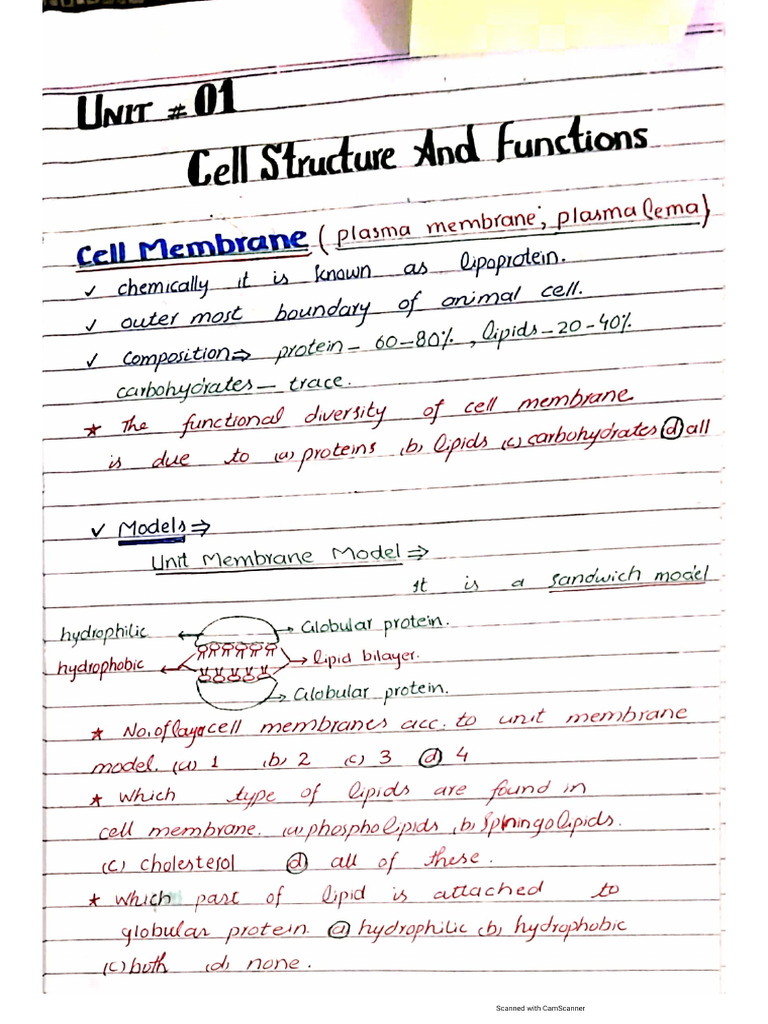 UNIT # 01
Cell Structure And Functions
Cell Membrane (plasma membrane, plasma lema)
✓ chemically it is known as lipoprotein.
✓ outer most boundary of animal cell.
✓ composition ⇒ protein – 60–80%, lipids – 20–40%
carbohydrates – trace.
* The functional diversity of cell membrane
is due to (a) proteins (b) lipids (c) carbohydrates (d) all
✓ Models ⇒
Unit Membrane Model ⇒
it is a sandwich model
hydrophilic Globular protein.
hydrophobic lipid bilayer.
Globular protein.
* No. of cell membranes acc. to unit membrane
model. (a) 1 (b) 2 (c) 3 (d) 4
* which type of lipids are found in
cell membrane. (a) phospholipids (b) Sphingolipids.
(c) cholesterol (d) all of these.
* which part of lipid is attached to
globular protein. (a) hydrophilic (b) hydrophobic
(c) both (d) none.
Scanned with CamScanner